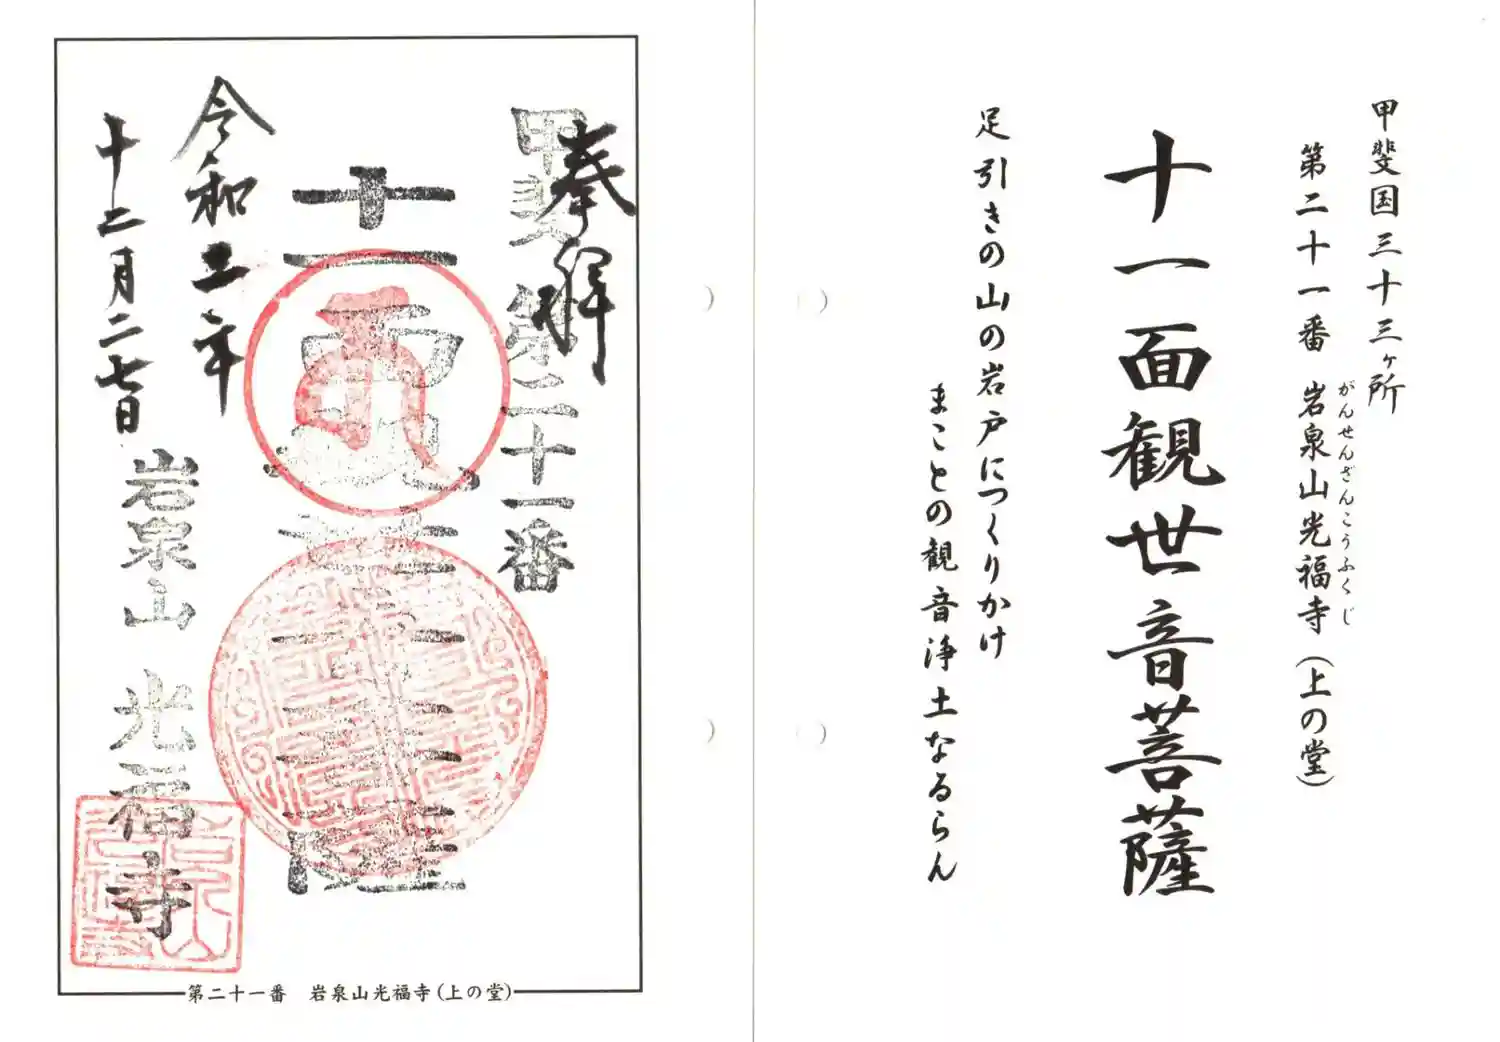 甲斐国三十三ヶ所
第二十一番 岩泉山光福寺(上の堂)
がんせんざんこうふくじ
十一面観世音菩薩
足引きの山の岩戸につくりかけ
まことの観音浄土なるらん
奉拝
甲斐 第二十一番
十一面
令和二年
十二月二七日
岩泉山 光福寺
第二十一番 岩泉山光福寺(上の堂)